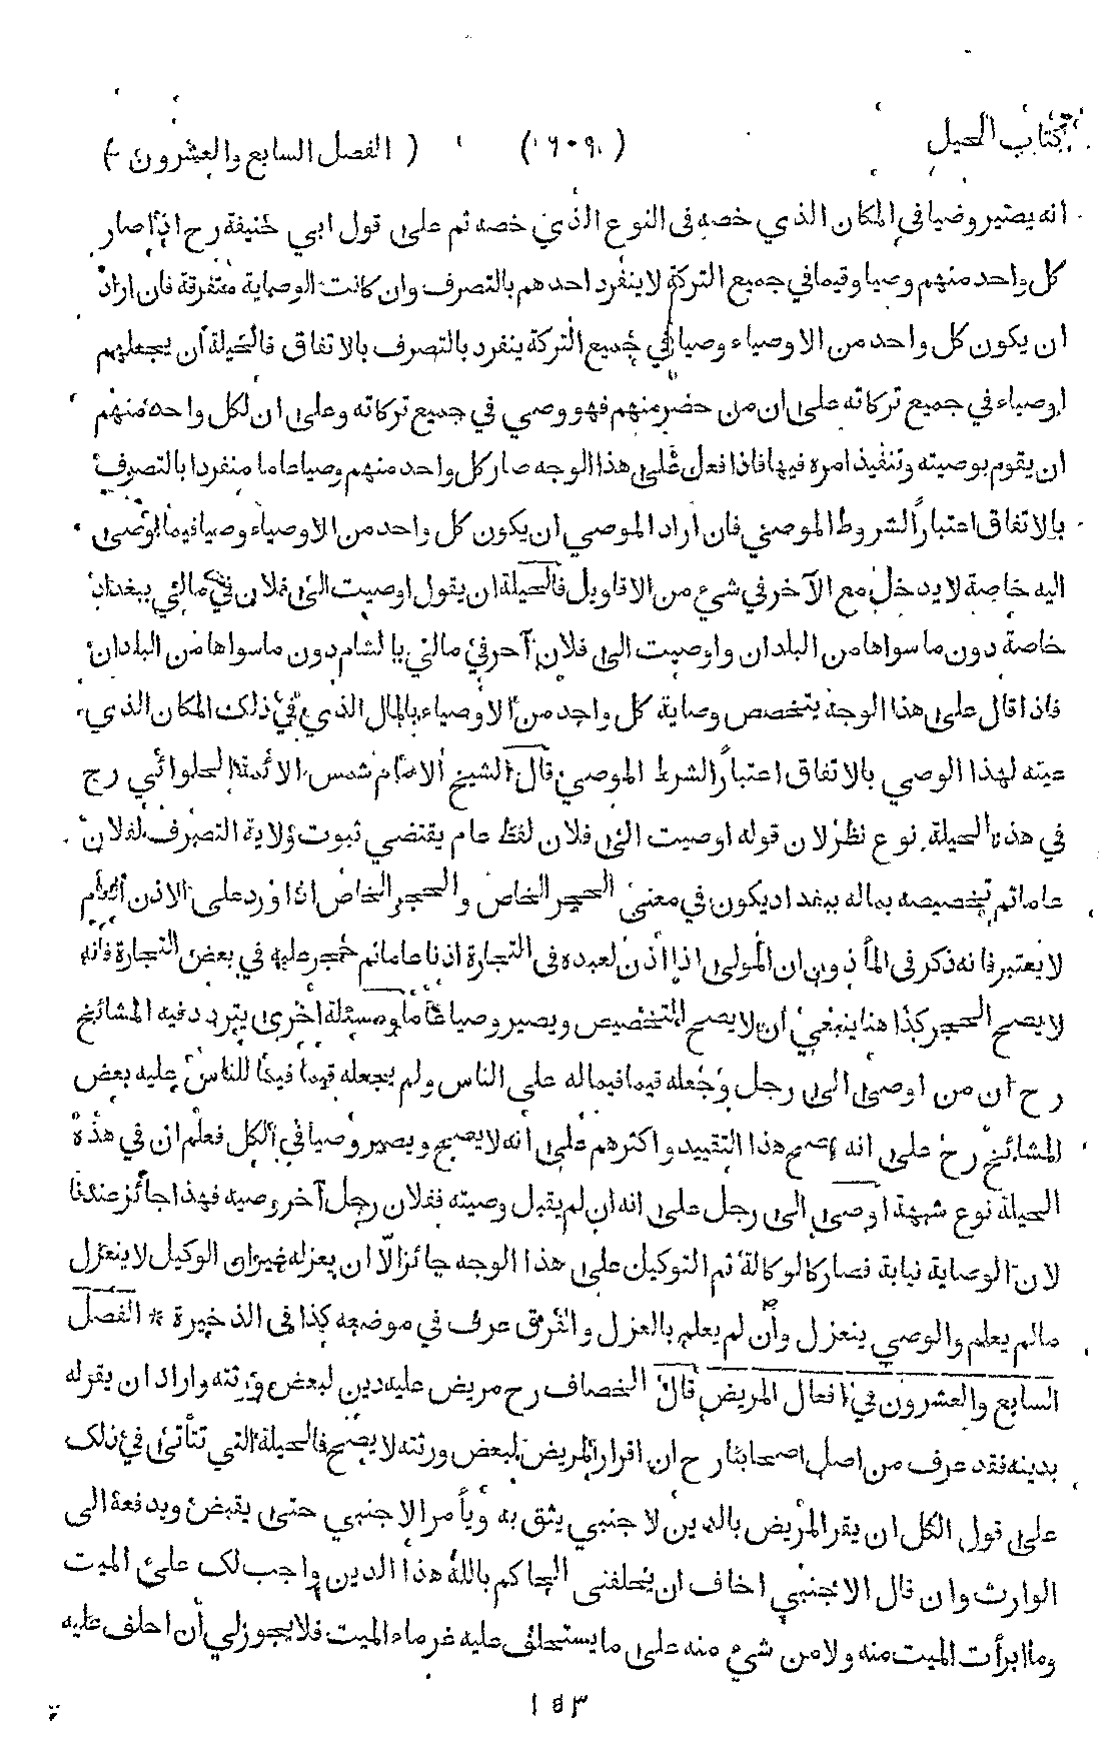 كتاب الحيل (٦٠٩) (الفصل السابع والعشرون)
انه يصير وصيا في المكان الذي خصه في النوع الذي خصه ثم على قول ابي حنيفة رح اذا صار
كل واحد منهم وصيا وقيما في جميع التركة لا ينفرد احدهم بالتصرف وان كانت الوصاية متفرقة فان اراد
ان يكون كل واحد من الاوصياء وصيا في جميع التركة ينفرد بالتصرف بالاتفاق فالحيلة أن يجعلهم
اوصياء في جميع تركاته على ان من حضر منهم فهو وصي في جميع تركاته وعلى ان لكل واحد منهم
ان يقوم بوصيته وتنفيذ امره فيها فاذا فعل على هذا الوجه صار كل واحد منهم وصيا عاما منفردا بالتصرف
بالاتفاق اعتبارًا لشروط الموصي فان اراد الموصي أن يكون كل واحد من الاوصياء وصيا فيما اوصى
اليه خاصة لا يدخل مع الآخر في شيء من الاقاويل فالحيلة ان يقول اوصيت الى فلان في مالي ببغداد
خاصة دون ما سواها من البلدان واوصيت الى فلان آخر في مالي بالشام دون ما سواها من البلدان
فاذا قال على هذا الوجه يتخصص وصاية كل واحد من الاوصياء بالمال الذي في ذلك المكان الذي
عينه لهذا الوصي بالاتفاق اعتبارًا لشرط الموصي قال الشيخ الامام شمس الائمة الحلوائي رح
في هذه الحيلة نوع نظر لان قوله اوصيت الى فلان لفظ عام يقتضي ثبوت ولاية التصرف لفلان
عاما ثم تخصيصه بماله ببغداد يكون في معنى الحجر الخاص والحجر الخاص اذا ورد على الاذن العام
لا يعتبر فانه ذكر في المأذون ان المولى اذا اذن لعبده في التجارة اذنا عاما ثم حجر عليه في بعض التجارة فانه
لا يصح الحجر كذا هنا ينبغي ان لا يصح التخصيص ويصير وصيا عاما ومسئلة اخرى يتردد فيه المشائخ
رح ان من اوصى الى رجل وجعله قيما فيما له على الناس ولم يجعله قيما فيما للناس عليه بعض
المشائخ رح على انه يصح هذا التقييد واكثرهم على انه لا يصح ويصير وصيا في الكل فعلم ان في هذه
الحيلة نوع شبهة اوصى الى رجل على انه ان لم يقبل وصيته ففلان رجل آخر وصيه فهذا جائز عندنا
لان الوصاية نيابة فصار كالوكالة ثم التوكيل على هذا الوجه جائز الّا ان يعزله غير ان الوكيل لا ينعزل
مالم يعلم والوصي ينعزل وأن لم يعلم بالعزل والفرق عرف في موضعه كذا في الذخيرة * الفصل
السابع والعشرون في افعال المريض قال الخصاف رح مريض عليه دين لبعض ورثته واراد ان يقر له
بدينه فقد عرف من اصل اصحابنا رح ان اقرار المريض لبعض ورثته لا يصح فالحيلة التي تتأتى في ذلك
على قول الكل ان يقر المريض بالدين لاجنبي يثق به ويأمر الاجنبي حتى يقبض ويدفعه الى
الوارث وان قال الاجنبي اخاف ان يحلفني الحاكم بالله هذا الدين واجب لك على الميت
وما ابرأت الميت منه ولا من شيء منه على ما يستحلف عليه غرماء الميت فلا يجوز لي أن احلف عليه
١٥٣